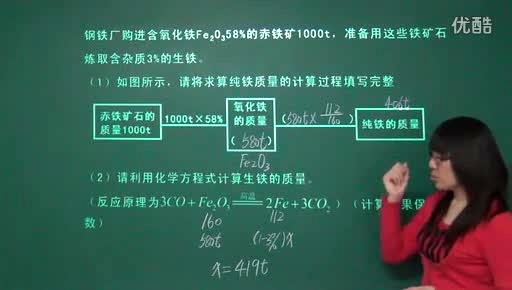 优酷
钢铁厂购进含氧化铁Fe₂O₃58%的赤铁矿1000t，准备用这些铁矿石
炼取含杂质3%的生铁。
（1）如图所示，请将求算纯铁质量的计算过程填写完整
赤铁矿石的质量1000t
1000t×58%
氧化铁的质量
（580t）
Fe₂O₃
（580t×112/160）
406t
纯铁的质量
（2）请利用化学方程式计算生铁的质量。
（反应原理为3CO+Fe₂O₃ 高温 2Fe+3CO₂）（计算 果保
数）
160 112
580t (1-3%)x
x=419t